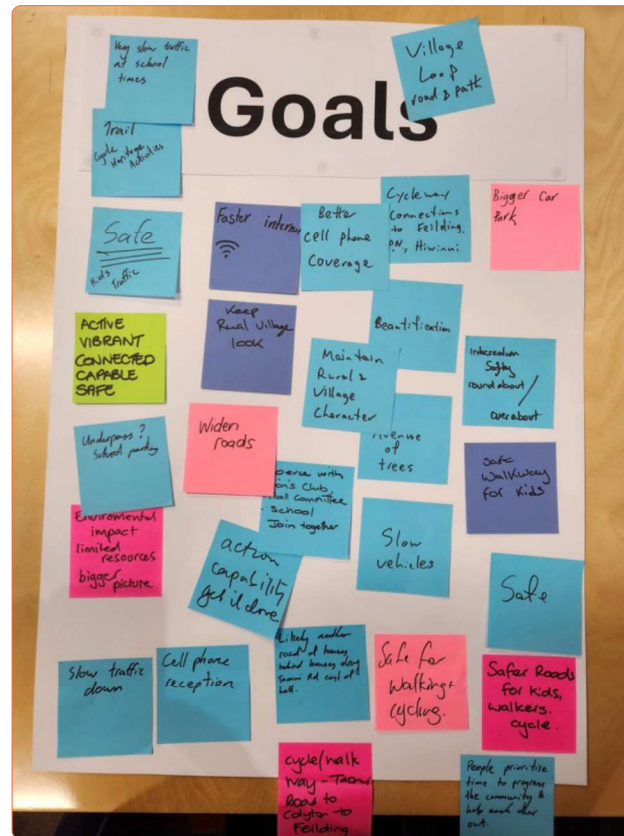 Very slow traffic
at school
times
Village
Loop
road & path
Goals
Trail
Cycle
Heritage
Activities
Safe
Kids
Traffic
Faster
Better
cell phone
Coverage
Cycleway
Connections
to Feilding,
PN,
Bigger Car
Park
ACTIVE
VIBRANT
CONNECTED
CAPABLE
SAFE
Keep
Rural Village
look
Beautification
Maintain
Rural &
Village
Character
round about /
Underpass?
School parking
Widen
roads
of
trees
Safe
Walkway
for kids
with
Club,
Committee
School
Join together
Enviromental
impact
limited
resources
bigger
picture
action
capability
get it done
Slow
vehicles
Safe
Slow traffic
down
Cell phone
reception
Likely another
road of houses
behind houses along
Rd east of
hall.
Safe for
walking +
cycling.
Safer Roads
for kids,
walkers.
cycle.
cycle/walk
way - Taonui
Road to
Colyton to
Feilding
People prioritise
time to progress
the community &
help each other
out.